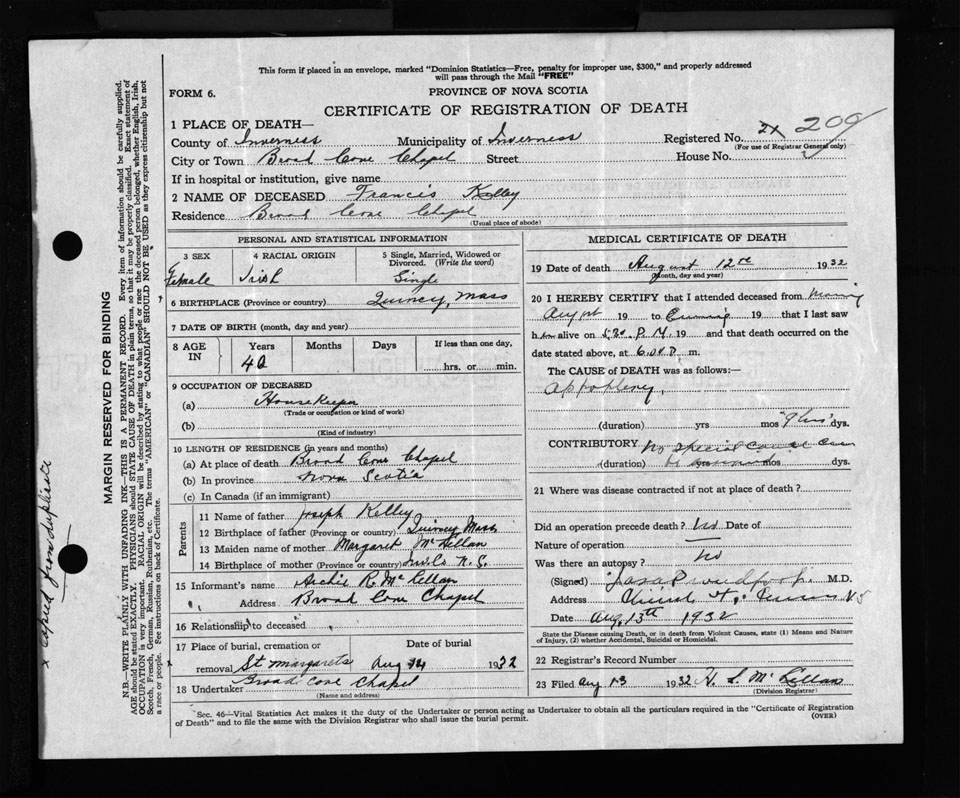 This form if placed in an envelope, marked "Dominion Statistics—Free, penalty for improper use, $300," and properly addressed
will pass through the Mail "FREE"
FORM 6.
PROVINCE OF NOVA SCOTIA
CERTIFICATE OF REGISTRATION OF DEATH
1 PLACE OF DEATH—
County of Inverness Municipality of Inverness Registered No. 21 209
(For use of Registrar General only)
City or Town Broad Cove Chapel Street House No.
If in hospital or institution, give name
2 NAME OF DECEASED Francis Kelley
Residence Broad Cove Chapel
(Usual place of abode)
PERSONAL AND STATISTICAL INFORMATION
3 SEX 4 RACIAL ORIGIN 5 Single, Married, Widowed or
Divorced. (Write the word)
Female Irish Single
6 BIRTHPLACE (Province or country) Quincy, Mass
7 DATE OF BIRTH (month, day and year)
8 AGE IN Years Months Days If less than one day,
hrs. or min.
9 OCCUPATION OF DECEASED
(a) House Keeper
(Trade or occupation or kind of work)
(b)
(Kind of industry)
10 LENGTH OF RESIDENCE (in years and months)
(a) At place of death Broad Cove Chapel
(b) In province Nova Scotia
(c) In Canada (if an immigrant)
Parents
11 Name of father Joseph Kelley
12 Birthplace of father (Province or country) Quincy Mass
13 Maiden name of mother Margaret McLellan
14 Birthplace of mother (Province or country) N. S.
15 Informant's name Archie R. McLellan
Address Broad Cove Chapel
16 Relationship to deceased
17 Place of burial, cremation or Date of burial
removal St Margarets Aug 14 1932
18 Undertaker Broad Cove Chapel
(Name and address)
MEDICAL CERTIFICATE OF DEATH
19 Date of death August 12 1932
(Month, day and year)
20 I HEREBY CERTIFY that I attended deceased from
August 19 to 19 that I last saw
h alive on 5.30 P.M. 19 and that death occurred on
date stated above, at 6 P. m.
The CAUSE of DEATH was as follows:—
(duration) yrs mos dys.
CONTRIBUTORY No special cause
(duration) mos dys.
21 Where was disease contracted if not at place of death?
Did an operation precede death? No Date of
Nature of operation
Was there an autopsy? No
(Signed) M.D.
Address N S
Date Aug, 13th 1932
State the Disease causing Death, or in death from Violent Causes, state (1) Means and Nature
of Injury, (2) whether Accidental, Suicidal or Homicidal.
22 Registrar's Record Number
23 Filed Aug 13 1932 McLellan
(Division Registrar)
Sec. 46—Vital Statistics Act makes it the duty of the Undertaker or person acting as Undertaker to obtain all the particulars required in the "Certificate of Registration
of Death" and to file the same with the Division Registrar who shall issue the burial permit.
(OVER)
MARGIN RESERVED FOR BINDING
N.B.—WRITE PLAINLY WITH UNFADING INK—THIS IS A PERMANENT RECORD. Every item of information should be carefully supplied.
AGE should be stated EXACTLY. PHYSICIANS should STATE CAUSE OF DEATH in plain terms, so that it may be properly classified. Exact statement of
OCCUPATION is very important. RACIAL ORIGIN will be described by stating to what people or race the deceased person belonged, whether English, Irish,
Scotch, French, German, Russian, Ruthenian, etc. The terms "AMERICAN" or "CANADIAN" SHOULD NOT BE USED as they express citizenship but not
a race or people. See instructions on back of Certificate.
x copied from duplicate